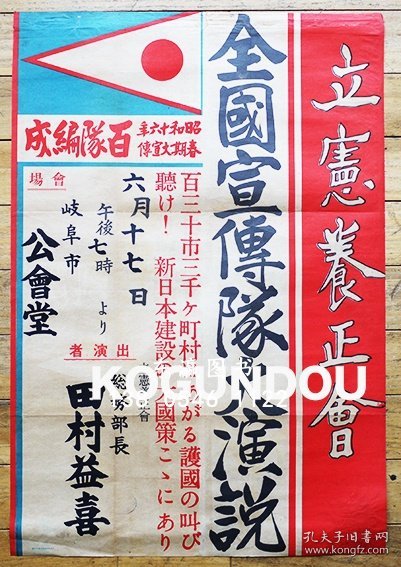 立憲養正會
全國宣傳隊大演説
百三十市三千ヶ町村にあがる護國の叫び
聽け! 新日本建設の大國策こゝにあり
昭和十六年
春期大宣傳
百隊編成
六月十七日
午後七時より
會場
岐阜市
公會堂
出演者
立憲養正會
総務部長
田村益喜
KOGUNDOU
孔夫子旧书网
www.kongfz.com